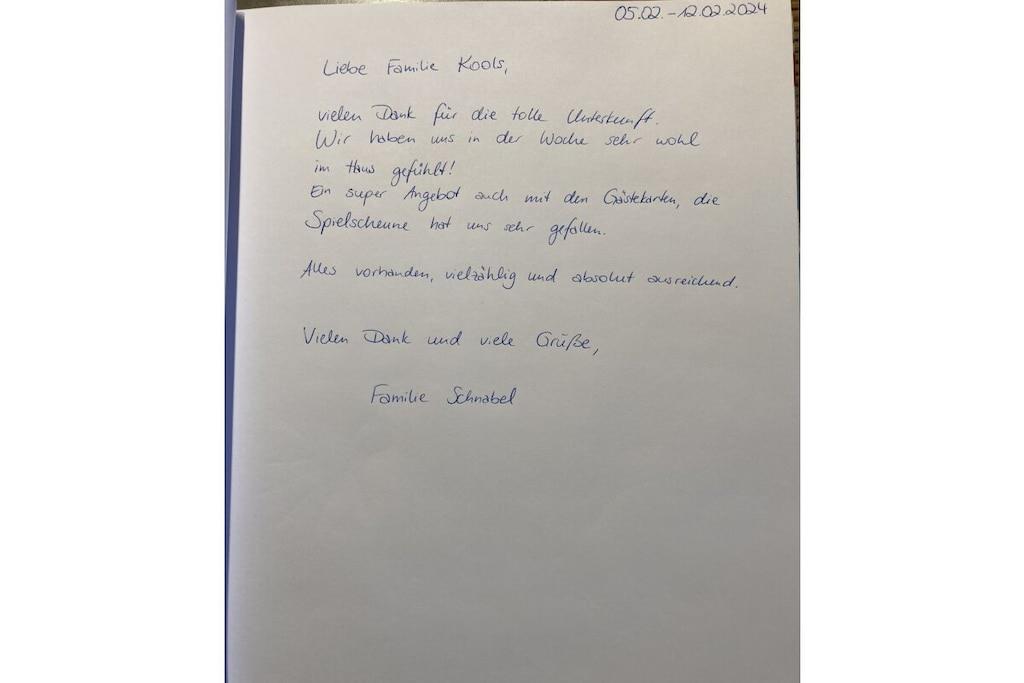 05.02.-12.02.2024
Liebe Familie Kools,
vielen Dank für die tolle Unterkunft.
Wir haben uns in der Woche sehr wohl
im Haus gefühlt!
Ein super Angebot auch mit den Gästekarten, die
Spielscheune hat uns sehr gefallen.
Alles vorhanden, vielzählig und absolut ausreichend.
Vielen Dank und viele Grüße,
Familie Schnabel